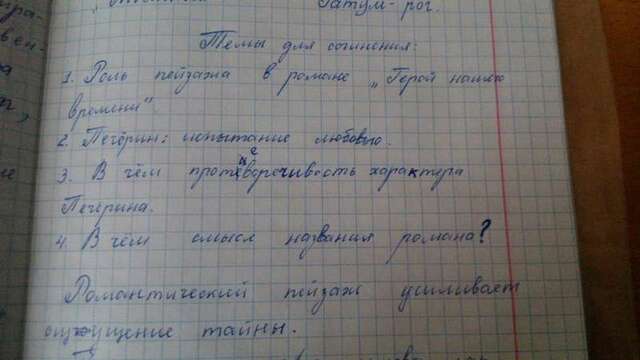 Гатум-рог.
Темы для сочинения:
1. Роль пейзажа в романе „Герой нашего
времени".
2. Печёрин: испытание любовью.
3. В чём противоречивость характера
Печёрина.
4. В чём смысл названия романа?
Романтический пейзаж усиливает
ощущение тайны.